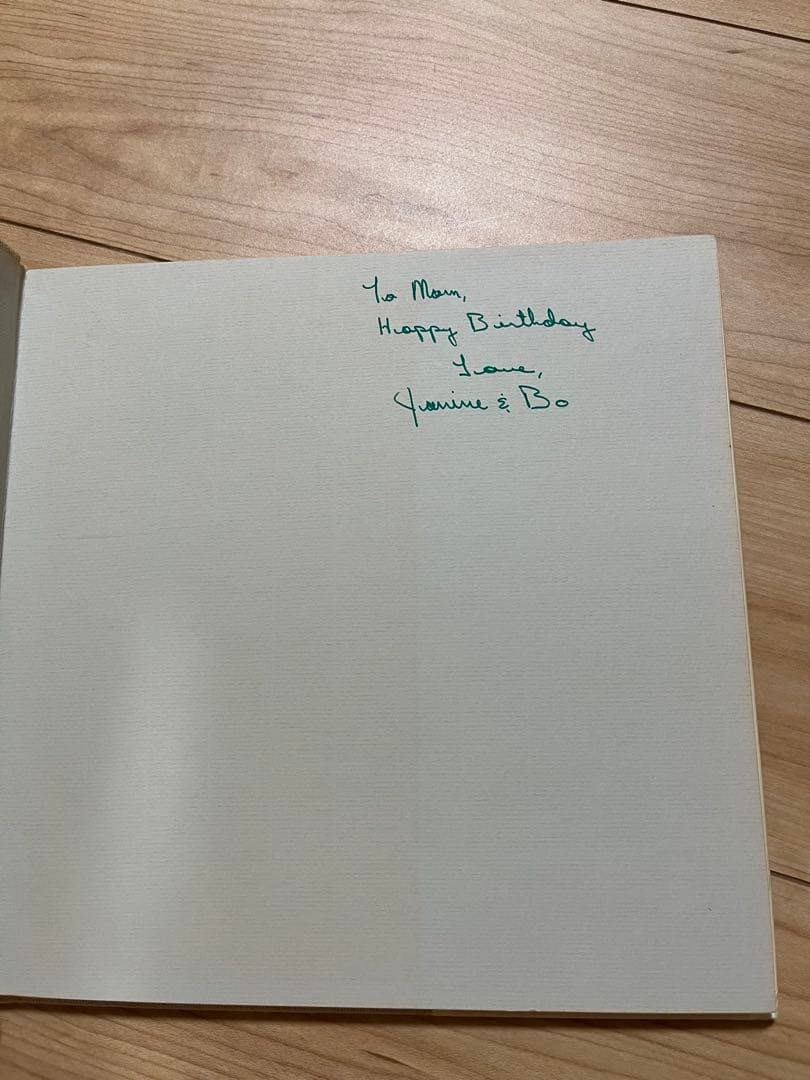 To Mom,
Happy Birthday
Love,
Janine & Bo